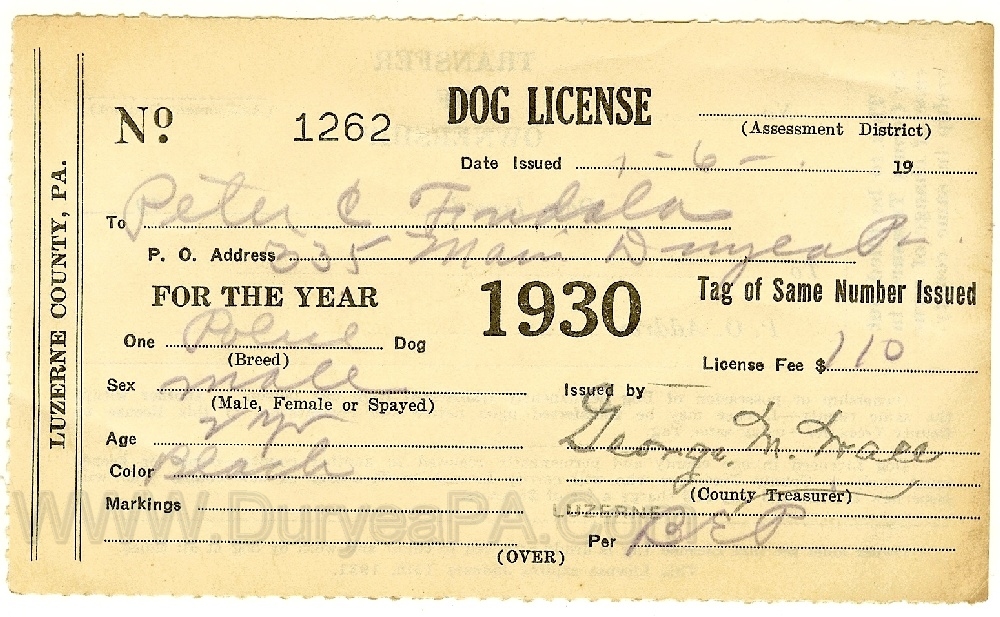 LUZERNE COUNTY, PA.
No. 1262
DOG LICENSE
(Assessment District)
Date Issued 1-6- 19
To Peter C
P. O. Address 335 Main Duryea Pa
FOR THE YEAR 1930
Tag of Same Number Issued
One Police Dog
(Breed)
License Fee $ 1 10
Sex male
(Male, Female or Spayed)
Issued by
George. M. Wall
Age yr
Color Black
(County Treasurer)
Markings
LUZERNE
Per B E P
(OVER)
WWW.DuryeaPA.Com